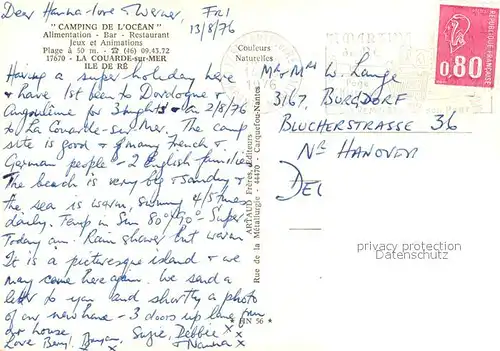 Dear Hanna-lore & Werner, FRI
13/8/76
"CAMPING DE L'OCÉAN"
Alimentation - Bar - Restaurant
Jeux et Animations
Plage à 50 m. - ☎ (46) 09.43.72
17670 - LA COUARDE-sur-MER
ILE DE RÉ
Having a super holiday here
& have 1st been to Dordogne &
Angoulime for 3 nights & on 2/8/76
to La Couarde-sur Mer. The camp
site is good & many French &
German people - 2 English families
The beach is very big & sandy &
the sea is warm, swimming 4/5 times
daily. Temp in Sun 80° 90° Super
Today am. Rain shower but warm
It is a picturesque island & we
may come here again. We send a
letter to you and shortly a photo
of our new home - 3 doors up lane from
our house
Love Beryl, Suzie, Debbie x x
& Nanna x x
Couleurs
Naturelles
ARTAUD Frères, Editeurs
Rue de la Métallurgie - 44470 - Carquefou-Nantes
* FIN 56 *
RÉPUBLIQUE FRANÇAISE
0,80
Mr & Mrs W. Lange
3167. BURGDORF
BLUCHERSTRASSE 36
Nr HANOVER
DEI
privacy protection
Datenschutz